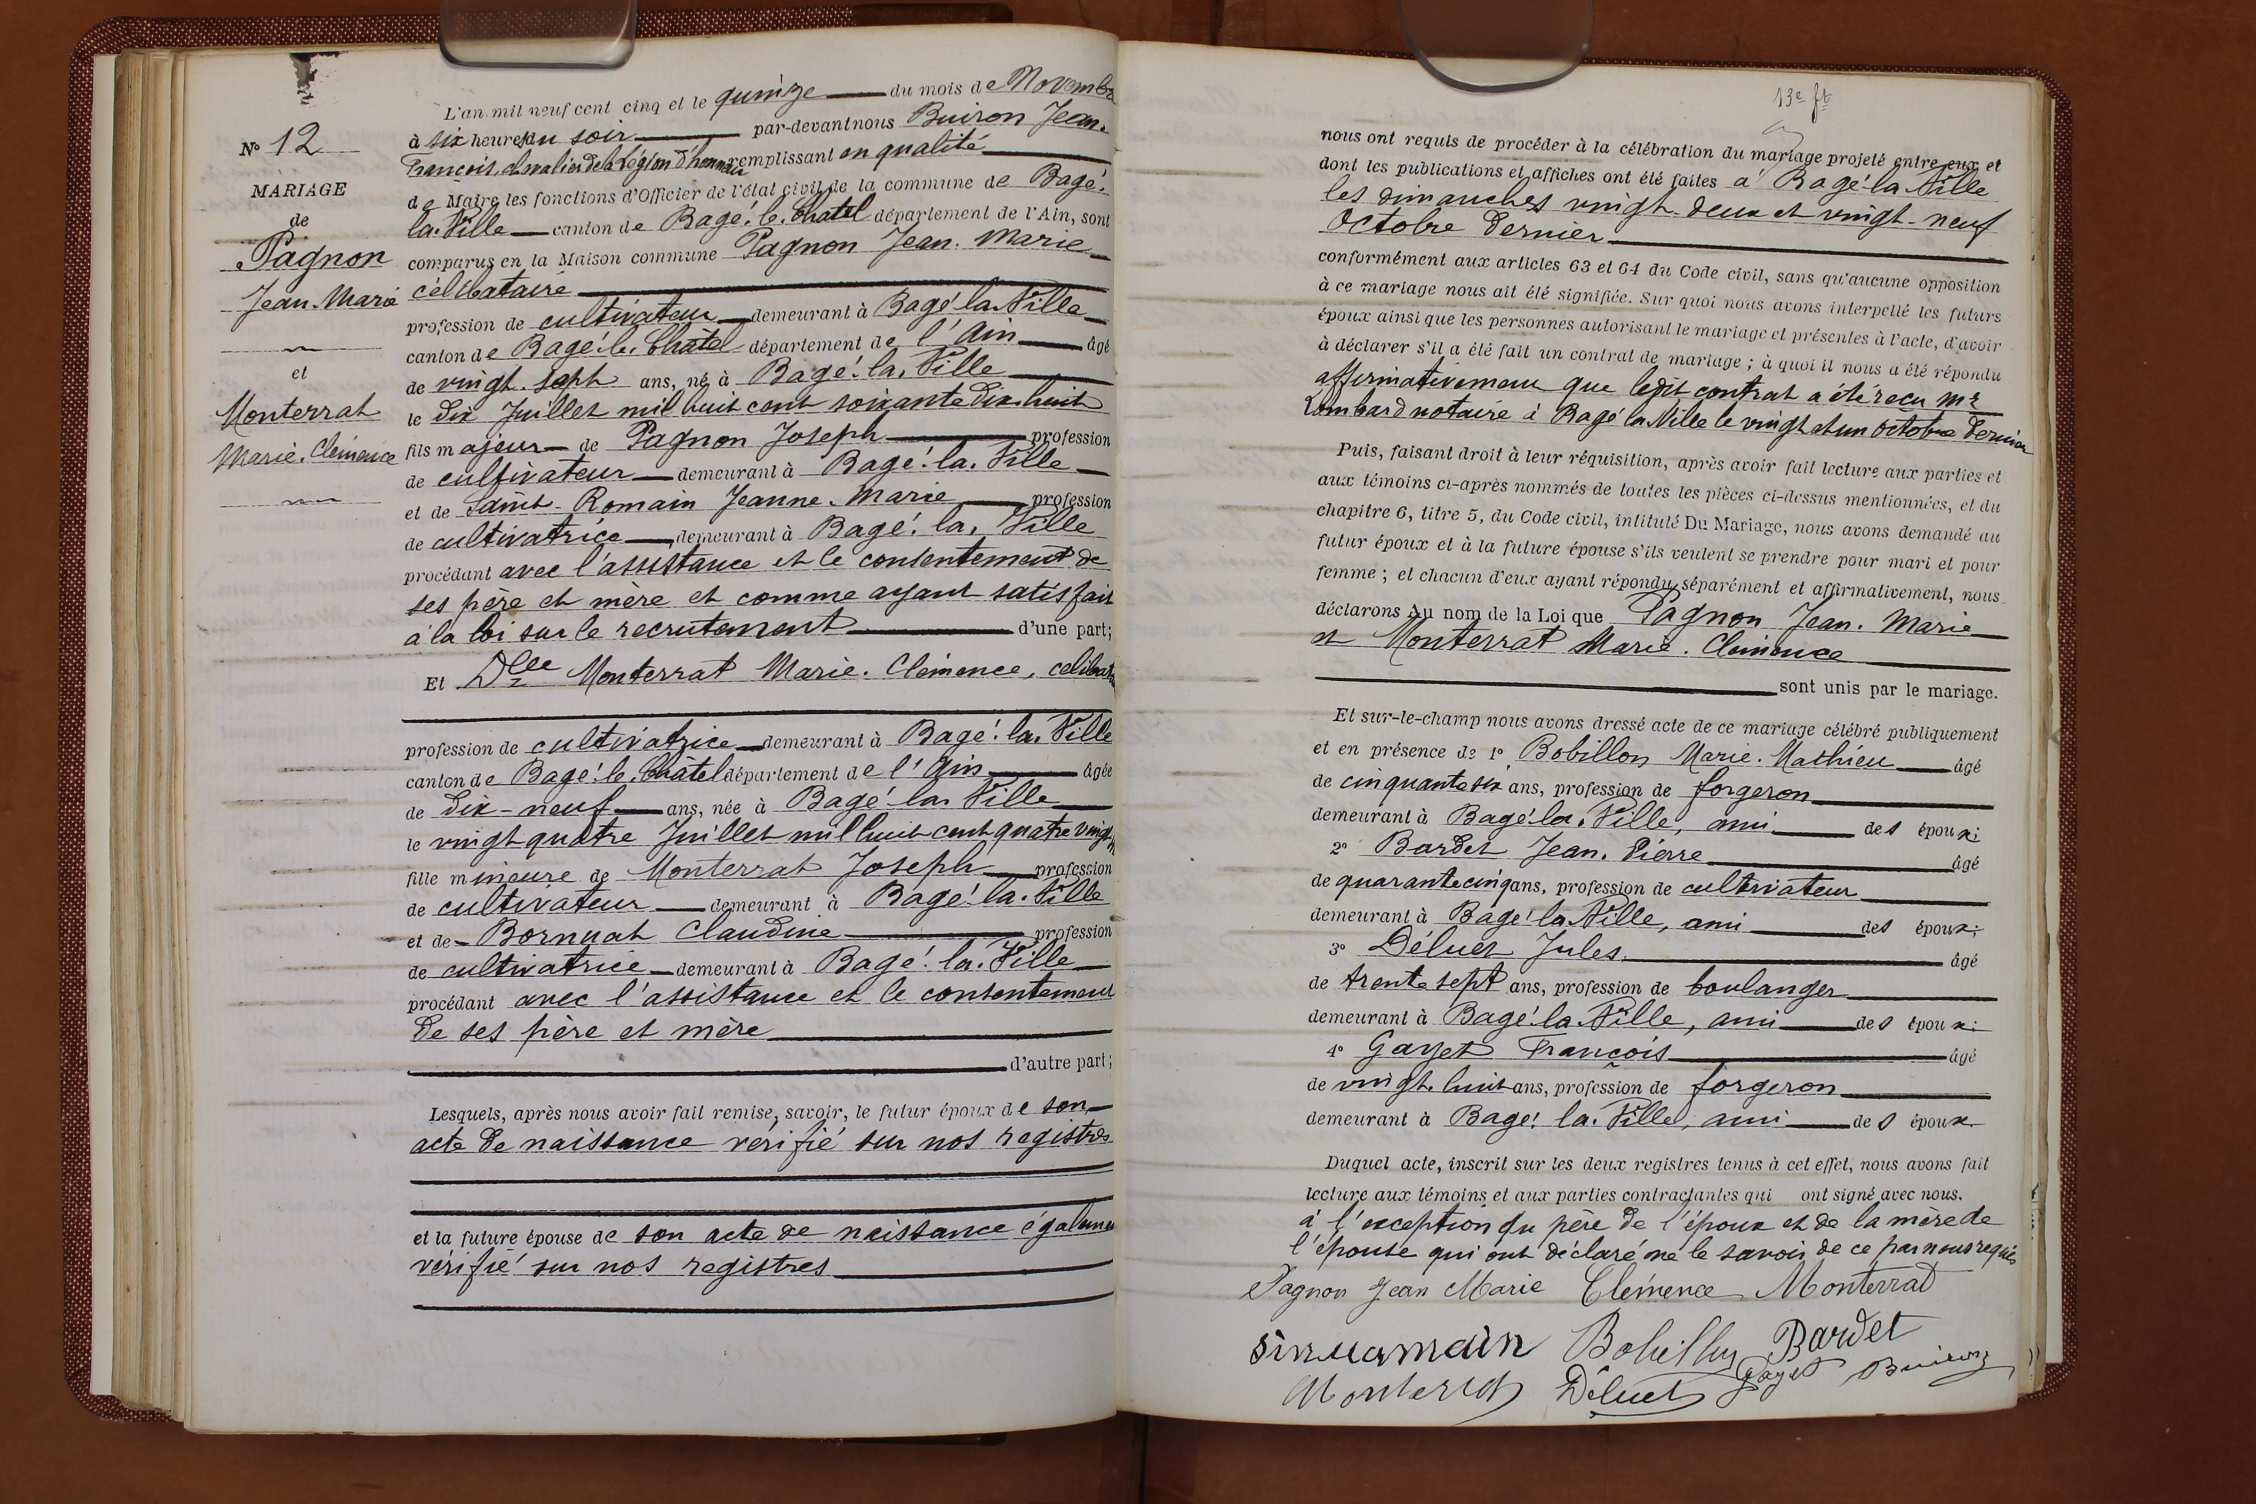 N° 12
MARIAGE
de
Pagnon
Jean-Marie
et
Monterrat
Marie-Clémence
L'an mil neuf cent cinq et le quinze du mois de Novembre
à six heures du soir par-devant nous Buiron Jean-
François, chevalier de la Légion d'honneur remplissant en qualité
de Maire les fonctions d'Officier de l'état civil de la commune de Bagé-
la-Ville canton de Bagé-le-Chatel département de l'Ain, sont
comparus en la Maison commune Pagnon Jean-Marie
célibataire
profession de cultivateur demeurant à Bagé-la-Ville
canton de Bagé-le-Châtel département de l'Ain âgé
de vingt-sept ans, né à Bagé-la-Ville
le dix Juillet mil huit cent soixante dix-huit
fils majeur de Pagnon Joseph profession
de cultivateur demeurant à Bagé-la-Ville
et de Saint-Romain Jeanne-Marie profession
de cultivatrice demeurant à Bagé-la-Ville
procédant avec l'assistance et le consentement de
ses père et mère et comme ayant satisfait
à la loi sur le recrutement d'une part;
Et Dlle Monterrat Marie-Clémence, célibat
profession de cultivatrice demeurant à Bagé-la-Ville
canton de Bagé-le-Châtel département de l'Ain âgée
de dix-neuf ans, née à Bagé-la-Ville
le vingt quatre Juillet mil huit cent quatre vingt
fille mineure de Monterrat Joseph profession
de cultivateur demeurant à Bagé-la-Ville
et de Bornuat Claudine profession
de cultivatrice demeurant à Bagé-la-Ville
procédant avec l'assistance et le consentement
de ses père et mère
d'autre part;
Lesquels, après nous avoir fait remise, savoir, le futur époux de son
acte de naissance vérifié sur nos registres
et la future épouse de son acte de naissance égalemen
vérifié sur nos registres
13e ft
nous ont requis de procéder à la célébration du mariage projeté entre eux et
dont les publications et affiches ont été faites à Bagé-la-Ville
les dimanches vingt-deux et vingt-neuf
Octobre dernier
conformément aux articles 63 et 64 du Code civil, sans qu'aucune opposition
à ce mariage nous ait été signifiée. Sur quoi nous avons interpellé les futurs
époux ainsi que les personnes autorisant le mariage et présentes à l'acte, d'avoir
à déclarer s'il a été fait un contrat de mariage ; à quoi il nous a été répondu
affirmativemen que ledit contrat a été reçu Mr
Lombard notaire à Bagé la Ville le vingt et un Octobre dernier
Puis, faisant droit à leur réquisition, après avoir fait lecture aux parties et
aux témoins ci-après nommés de toutes les pièces ci-dessus mentionnées, et du
chapitre 6, titre 5, du Code civil, intitulé Du Mariage, nous avons demandé au
futur époux et à la future épouse s'ils veulent se prendre pour mari et pour
femme ; et chacun d'eux ayant répondu séparément et affirmativement, nous
déclarons Au nom de la Loi que Pagnon Jean-Marie
et Monterrat Marie-Clémence
sont unis par le mariage.
Et sur-le-champ nous avons dressé acte de ce mariage célébré publiquement
et en présence de 1° Bobillon Marie-Mathieu âgé
de cinquante six ans, profession de forgeron
demeurant à Bagé-la-Ville, ami des époux;
2° Bardet Jean-Pierre âgé
de quarante cinq ans, profession de cultivateur
demeurant à Bagé-la-Ville, ami des époux;
3° Déluet Jules âgé
de trente sept ans, profession de boulanger
demeurant à Bagé-la-Ville, ami des époux;
4° Gayet François âgé
de vingt-huit ans, profession de forgeron
demeurant à Bagé-la-Ville, ami des époux
Duquel acte, inscrit sur les deux registres tenus à cet effet, nous avons fait
lecture aux témoins et aux parties contractantes qui ont signé avec nous.
à l'exception du père de l'époux et de la mère de
l'épouse qui ont déclaré ne le savoir de ce par nous requis
Pagnon Jean Marie Clémence Monterrat
Bobillon Bardet
Monterrat Déluet Gayet Buiron